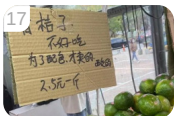 17
桔子
不好吃
为了配色才卖的
2.5元一斤